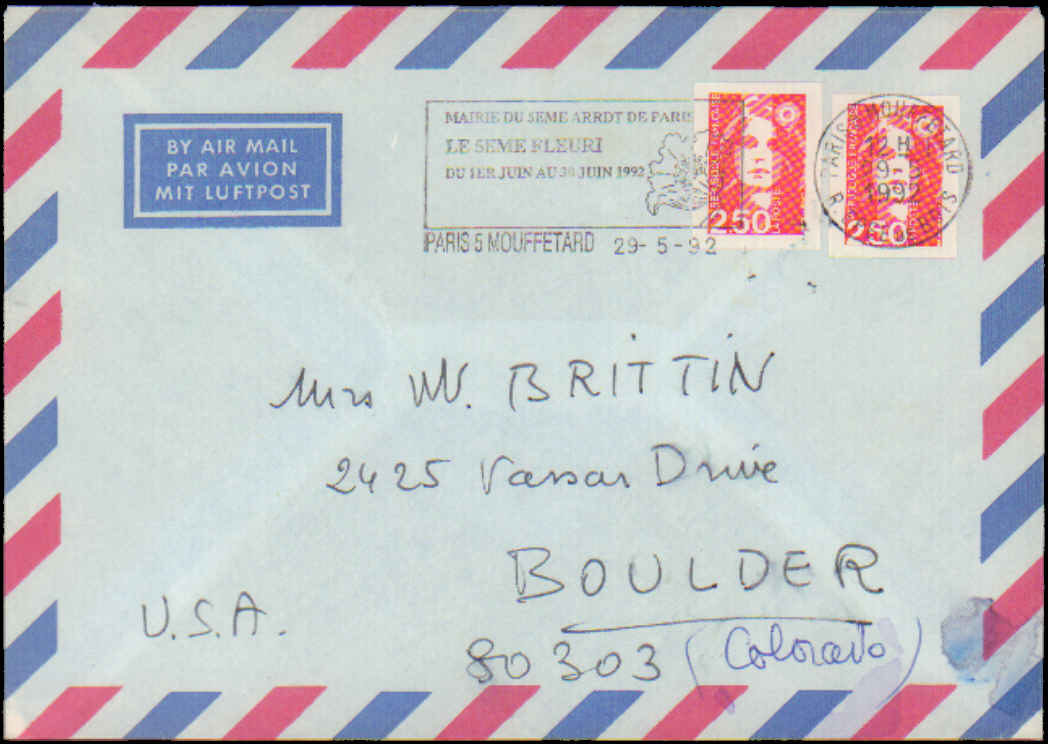 BY AIR MAIL
PAR AVION
MIT LUFTPOST
MAIRIE DU 5EME ARRDT DE PARIS
LE 5EME FLEURI
DU 1ER JUIN AU 30 JUIN 1992
PARIS 5 MOUFFETARD 29-5-92
REPUBLIQUE FRANÇAISE
2,50
LA POSTE
2,50
PARIS MOUFFETARD
12 H
1992
Mrs W. BRITTIN
2425 Vassar Drive
BOULDER
U.S.A.
80303 (Colorado)